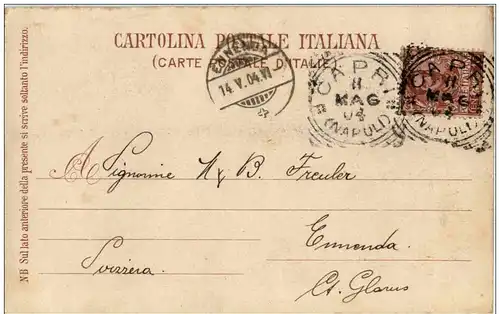 CARTOLINA POSTALE ITALIANA
(CARTE POSTALE D'ITALIE)
ENNENDA
14.V.04.VI
CAPRI
11
MAG
04
(NAPOLI)
CAPRI
11
MAG
04
(NAPOLI)
NB Sul lato anteriore della presente si scrive soltanto l'indirizzo.
Signorine A & B. Freuler
Ennenda
Svizzera.
Ct. Glarus